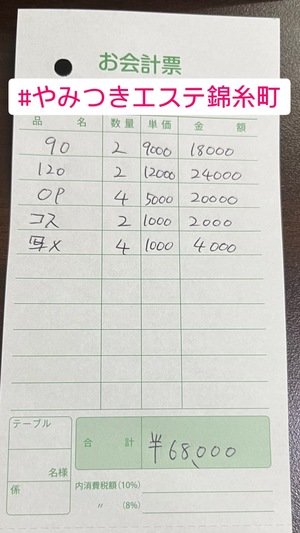 お会計票
#やみつきエステ錦糸町
品 名 数量 単価 金 額
90 2 9000 18000
120 2 12000 24000
OP 4 5000 20000
コス 2 1000 2000
写メ 4 1000 4000
テーブル
名様
係
合 計 ¥68,000
内消費税額(10%)
〃 (8%)